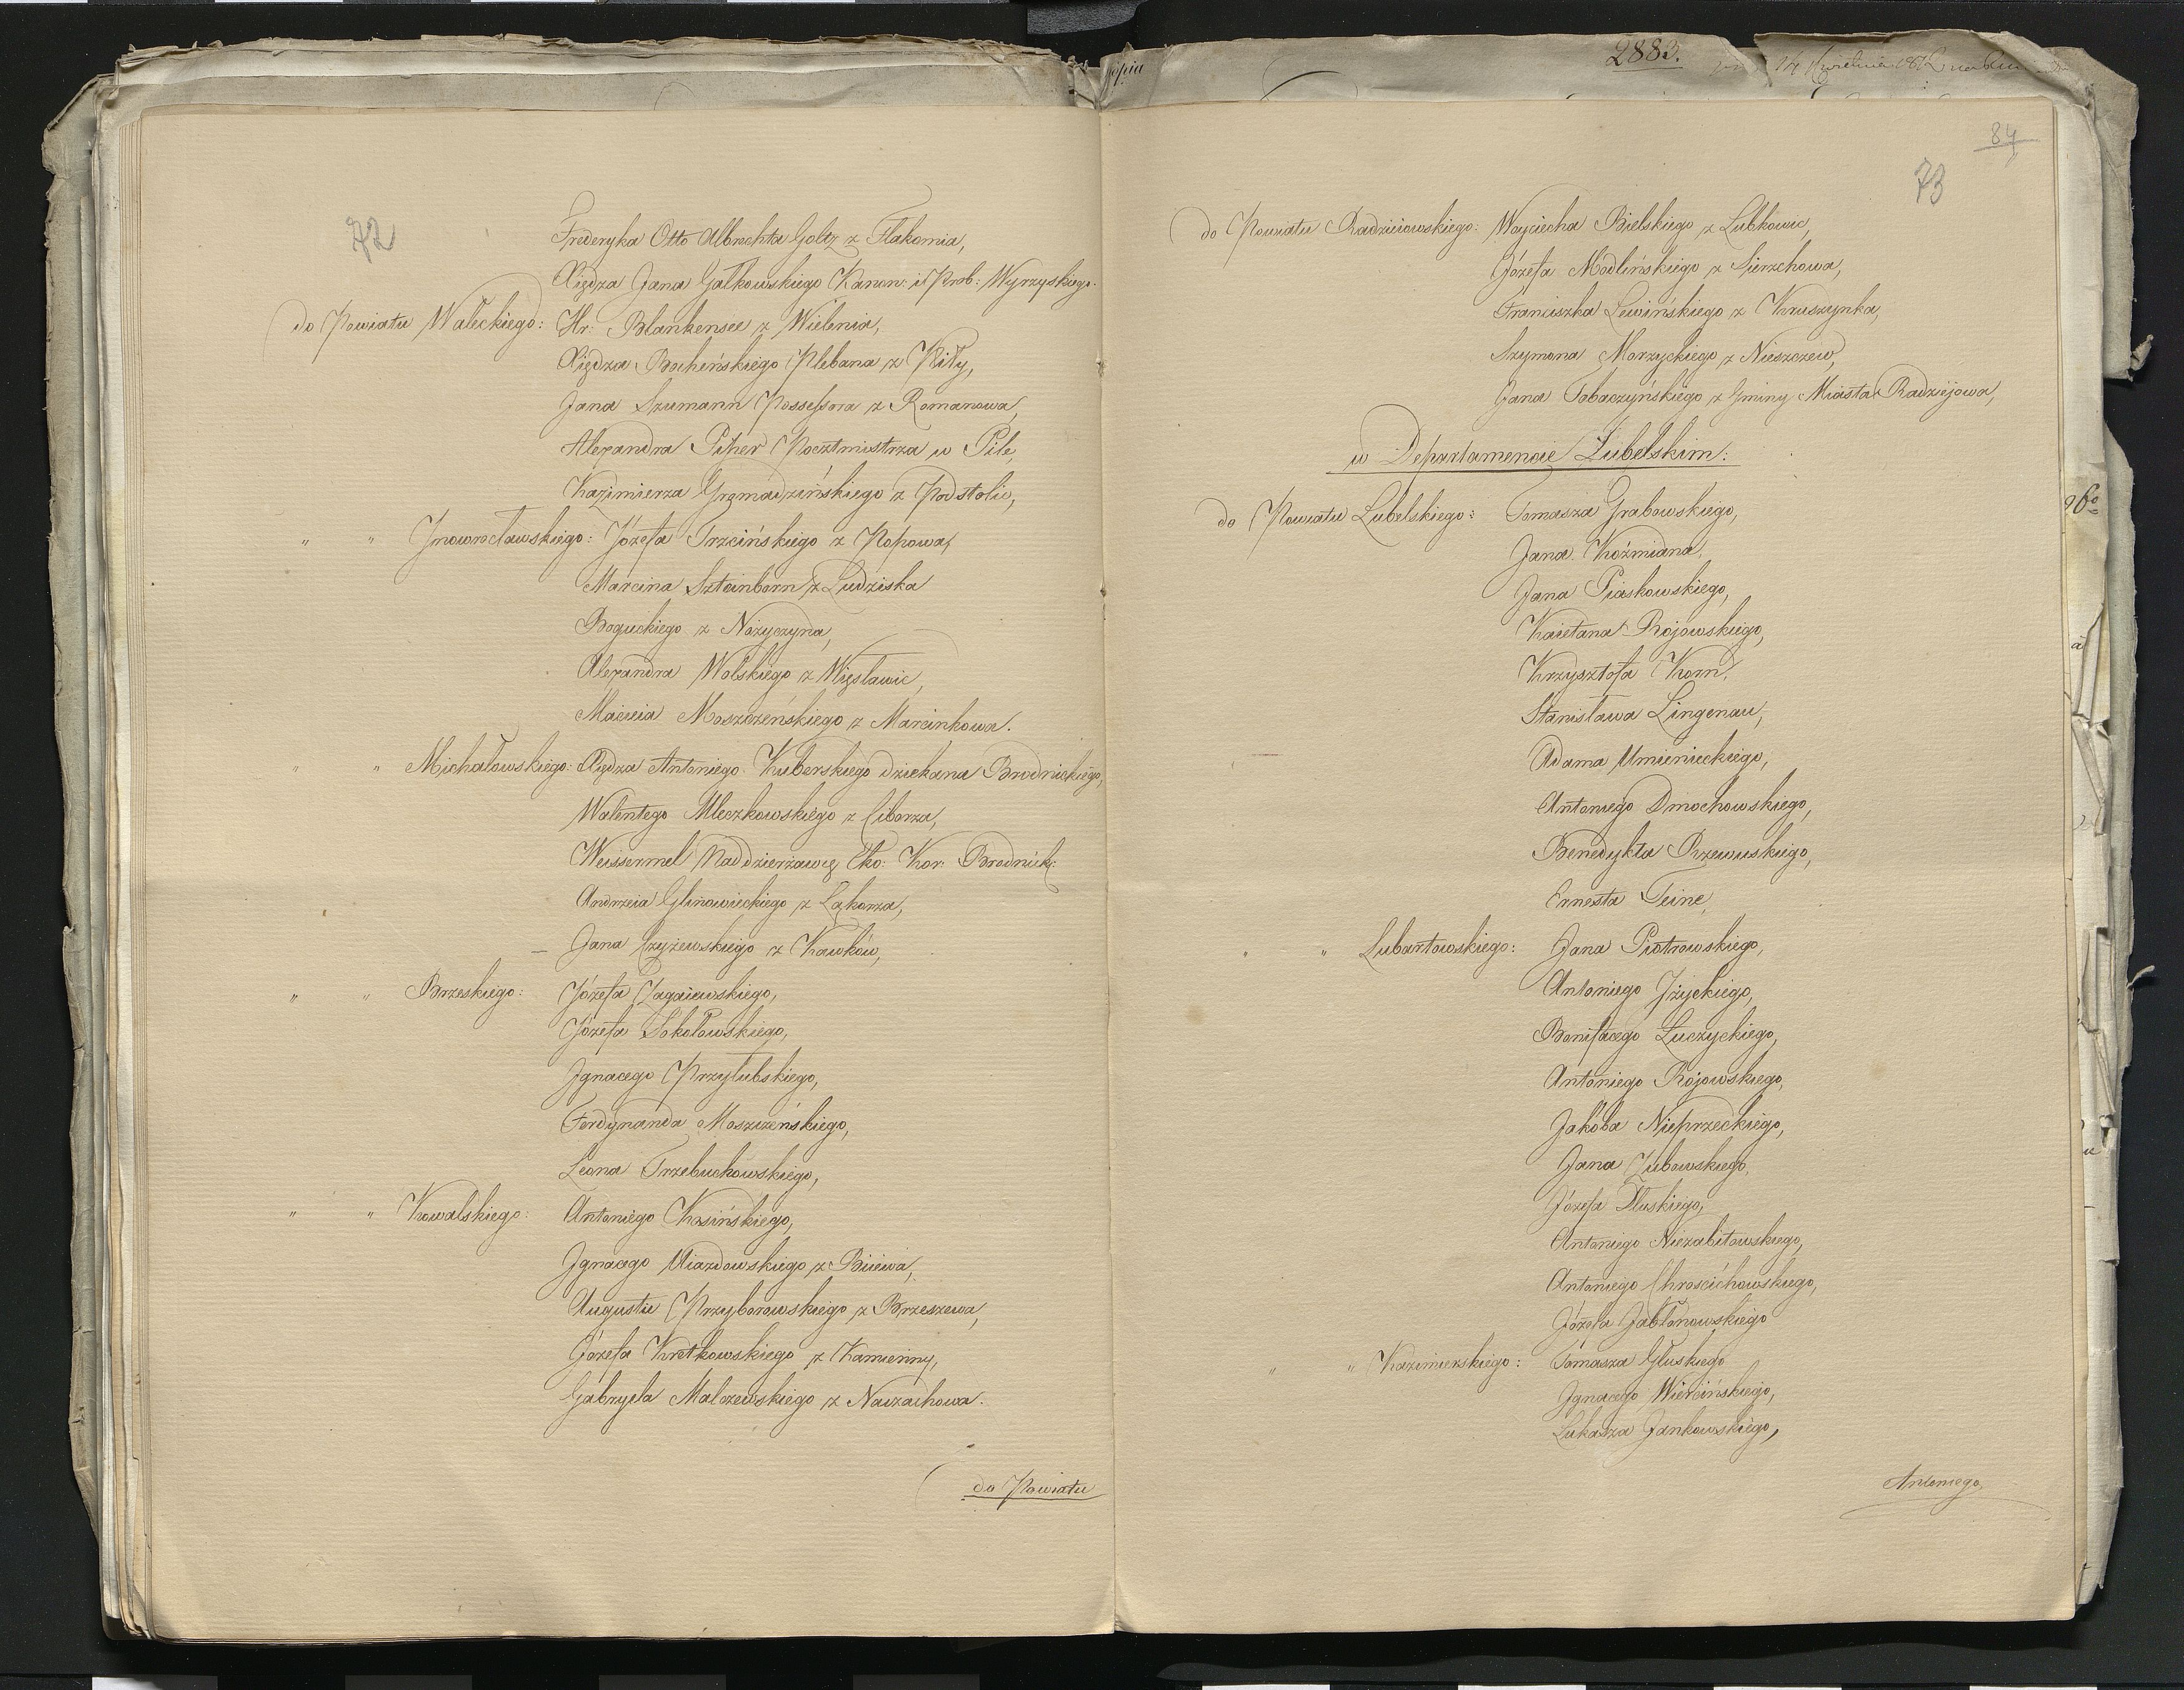 72
Fryderyka Otto Albrechta Goltz z Flakomia,
Xiędza Jana Gałkowskiego Kanon: i Prob: Wyrzyskiego.
do Powiatu Wałeckiego: Hr: Blankensee z Wielenia,
Xiędza Bocheńskiego Plebana z Piły,
Jana Szumann Possessora z Romanowa,
Alexandra Piher Pocztmistrza w Pile,
Kazimierza Grzmadzińskiego z Podstolic,
" " Jnowrocławskiego: Józefa Trzcińskiego z Popowa,
Marcina Szteinborn z Ludziska
Boguckiego z Nożyczyna,
Alexandra Wolskiego z Więsławic,
Macieia Moszczeńskiego z Marcinkowa.
" " Michałowskiego: Xiędza Antoniego Kuberskiego dziekana Brodnickiego,
Walentego Mleczkowskiego z Ciborza,
Weissermel Naddzierżawcę Eko: Kor: Brodnick:
Andrzeia Glinowieckiego z Łąkorza,
Jana Czyżewskiego z Kawków,
" " Brzeskiego: Józefa Zagaiewskiego,
Józefa Sokołowskiego,
Jgnacego Przyłubskiego,
Ferdynanda Moszczeńskiego,
Leona Trzebuchowskiego,
" " Kowalskiego: Antoniego Karsińskiego,
Jgnacego Miazdowskiego z Biiewa,
Augusta Przyborowskiego z Brzeszewa,
Józefa Kretkowskiego z Kamienny,
Gabryela Malczewskiego z Naczachowa.
do Powiatu
2883.
84
73
do Powiatu Radziiowskiego: Woyciecha Bielskiego z Lubkowic,
Józefa Modlińskiego z Sierzchowa,
Franciszka Lewińskiego z Kruszynka,
Szymona Morzyckiego z Nieszczew,
Jana Tobaczyńskiego z Gminy Miasta Radziejowa,
w Departamencie Lubelskim:
do Powiatu Lubelskiego: Tomasza Grabowskiego,
Jana Koźmiana,
Jana Piaskowskiego,
Kaietana Rojowskiego,
Krzysztofa Korn,
Stanisława Lingenau,
Adama Umienieckiego,
Antoniego Dmochowskiego,
Benedykta Rzewuskiego,
Ernesta Teine,
" " Lubartowskiego: Jana Piotrowskiego,
Antoniego Jżyckiego,
Bonifacego Łuczyckiego,
Antoniego Rojowskiego,
Jakóba Nieprzeckiego,
Jana Zubowskiego,
Józefa Tłuskiego,
Antoniego Niezabitowskiego,
Antoniego Chrościchowskiego,
Józefa Jabłonowskiego
" " Kazimierskiego: Tomasza Głuskiego
Jgnacego Wiercińskiego,
Łukasza Jankowskiego,
Antoniego